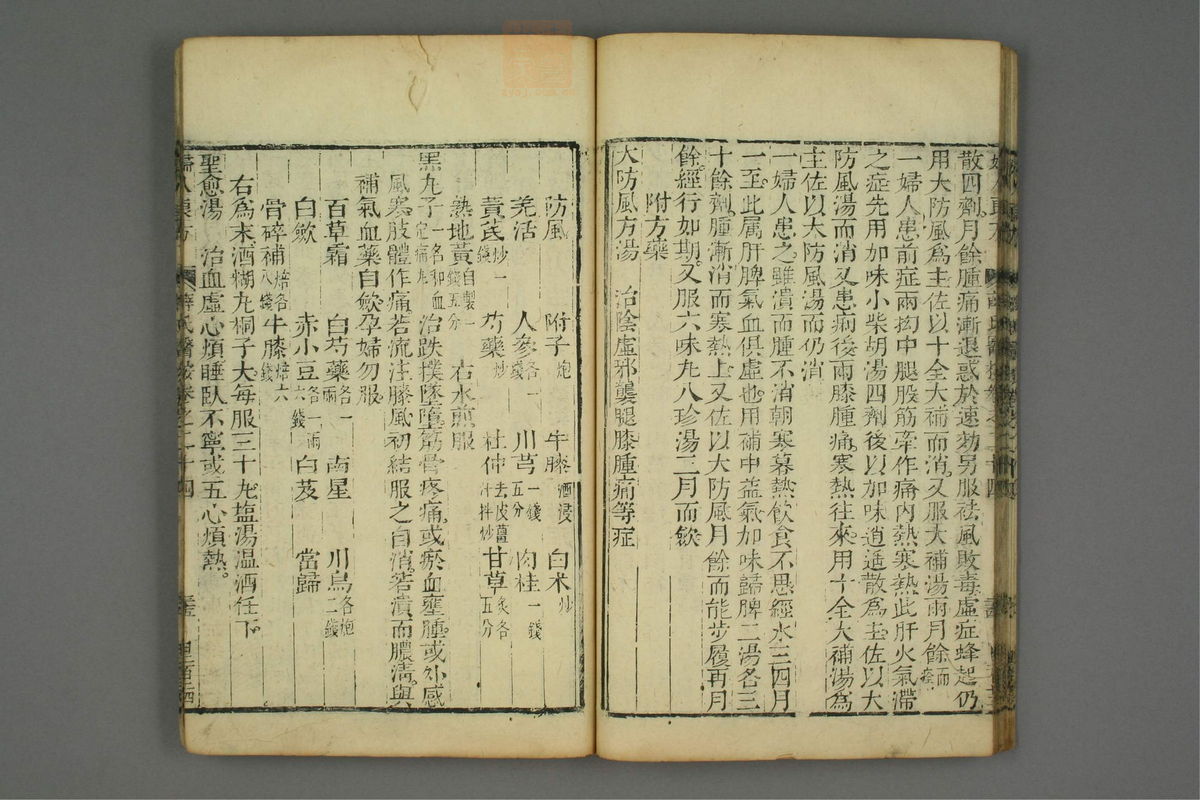 散四劑月餘腫痛漸退惑於速効另服祛風敗毒虛症蜂起仍
用大防風為主佐以十全大補而消又服大補湯兩月餘而痊
一婦人患前症兩拗中腿股筋牽作痛內熱寒熱此肝火氣滯
之症先用加味小柴胡湯四劑後以加味逍遥散為主佐以大
防風湯而消又患痢後兩膝腫痛寒熱往來用十全大補湯為
主佐以大防風湯而仍消
一婦人患之雖潰而腫不消朝寒暮熱飲食不思經水三四月
一至此属肝脾氣血俱虛也用補中益氣加味歸脾二湯各三
十餘劑腫漸消而寒熱止又佐以大防風月餘而能步履再月
餘經行如期又服六味丸八珍湯三月而歛
附方藥
大防風方湯 治陰虛邪襲腿膝腫痛等症
防風 附子炮 牛膝酒浸 白术炒
羌活 人參各一錢 川芎一錢五分 肉桂一錢
黄芪炒一錢 芍藥炒 杜仲去皮薑汁拌炒 甘草炙各五分
熟地黃自製一錢五分 右水煎服
黑丸子一名和血定痛丸 治跌撲墜墮筋骨疼痛或瘀血壅腫或外感
風寒肢體作痛若流注膝風初結服之自消若潰而膿清與
補氣血藥自歛孕婦勿服
百草霜 白芍藥各一兩 南星 川烏各炮三錢
白歛 赤小豆各一兩六錢 白芨 當歸
骨碎補焙各八錢 牛膝焙六錢
右為末酒糊丸桐子大每服三十丸塩湯温酒任下
聖愈湯 治血虛心煩睡卧不寧或五心煩熱